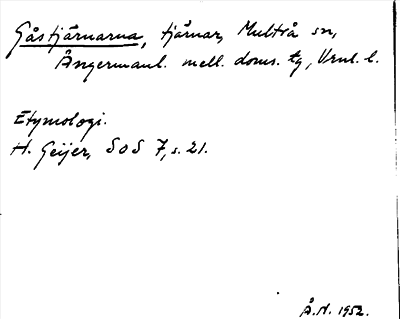 Gåstjärnarna, tjärnar, Multrå sn,
Ångermanl. mell. doms. tg, Vnl. l.
Etymologi.
H. Geijer, SOS 7, s. 21.
Å.N. 1952.